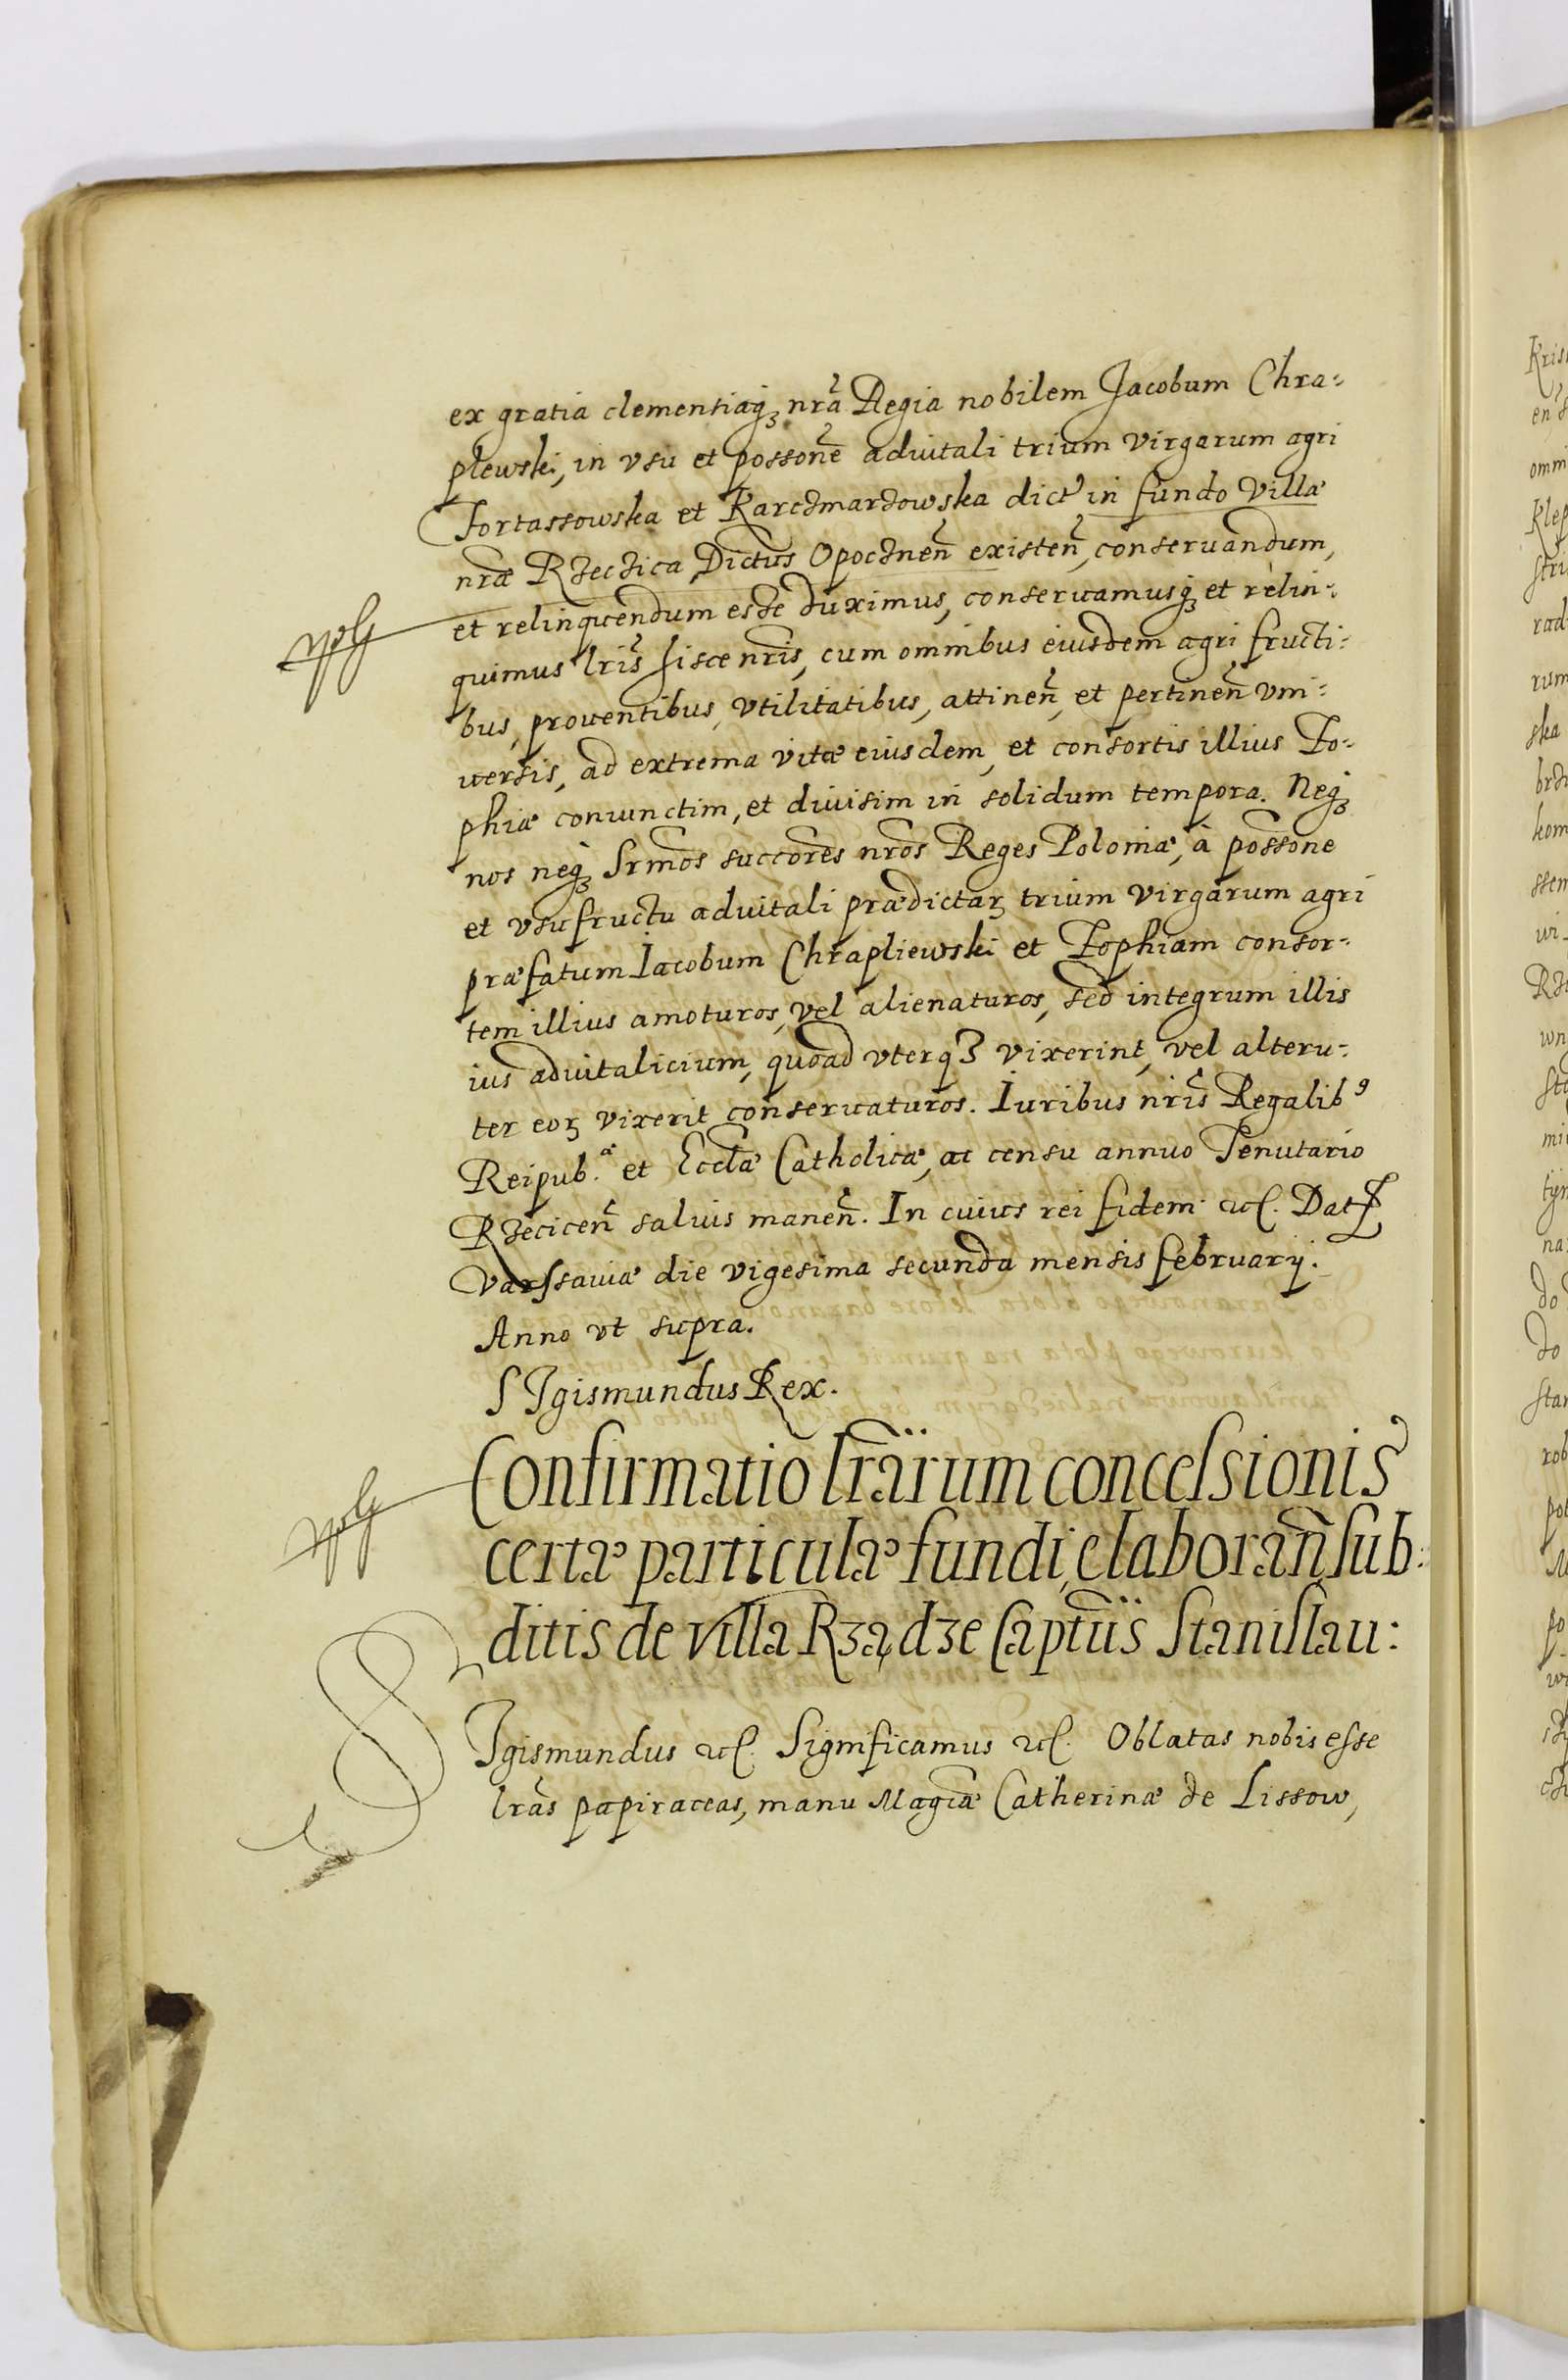 ex gratia clementiaq̃ nrã Regia nobilem Jacobum Chra-
plewski, in vsu et possonẽ aduitali trium virgarum agri
Tortassowska et Karczmarzowska dict in fundo Villæ
nræ Rzeczica, Dictus Opocznen̄ existen̄, conseruandum,
et relinquendum esse duximus, conseruamusq̃ et relin-
quimus lris̃ hisce nris̃, cum omnibus eiusdem agri fructi-
bus, prouentibus, vtilitatibus, attinen̄, et pertinen̄ vni-
uersis, ad extrema vitæ eiusdem, et consortis illius Zo-
phiæ coniunctim, et diuisim in solidum tempora. Neq̃
nos neq̃ Srmos succores nros Reges Poloniæ, à possone
et vsufructu aduitali prædictaꝝ trium virgarum agri
præfatum Iacobum Chrapliewski et Zophiam consor-
tem illius amoturos, vel alienaturos, sed integrum illis
ius aduitalicium, quoad vterqꝫ vixerint, vel alteru-
ter eoꝝ vixerit conseruaturos. Iuribus nris̃ Regalibꝰ
Reipub.æ et Ecclæ Catholicæ, ac censu annuo Tenutario
Rzecicen̄ saluis manen̄. In cuius rei fidem etc. Dat
Varssauiæ die vigesima secunda mensis february.
Anno vt supra.
SIgismundus Rex.
Confirmatio lrãrum concessionis
certæ particulæ fundi, elaboran̄, sub-
ditis de villa Rządze Captiis Stanislau:
SIgismundus etc. Significamus etc. Oblatas nobis esse
lrãs papiraceas, manu Magcæ Catherinæ de Lissow,